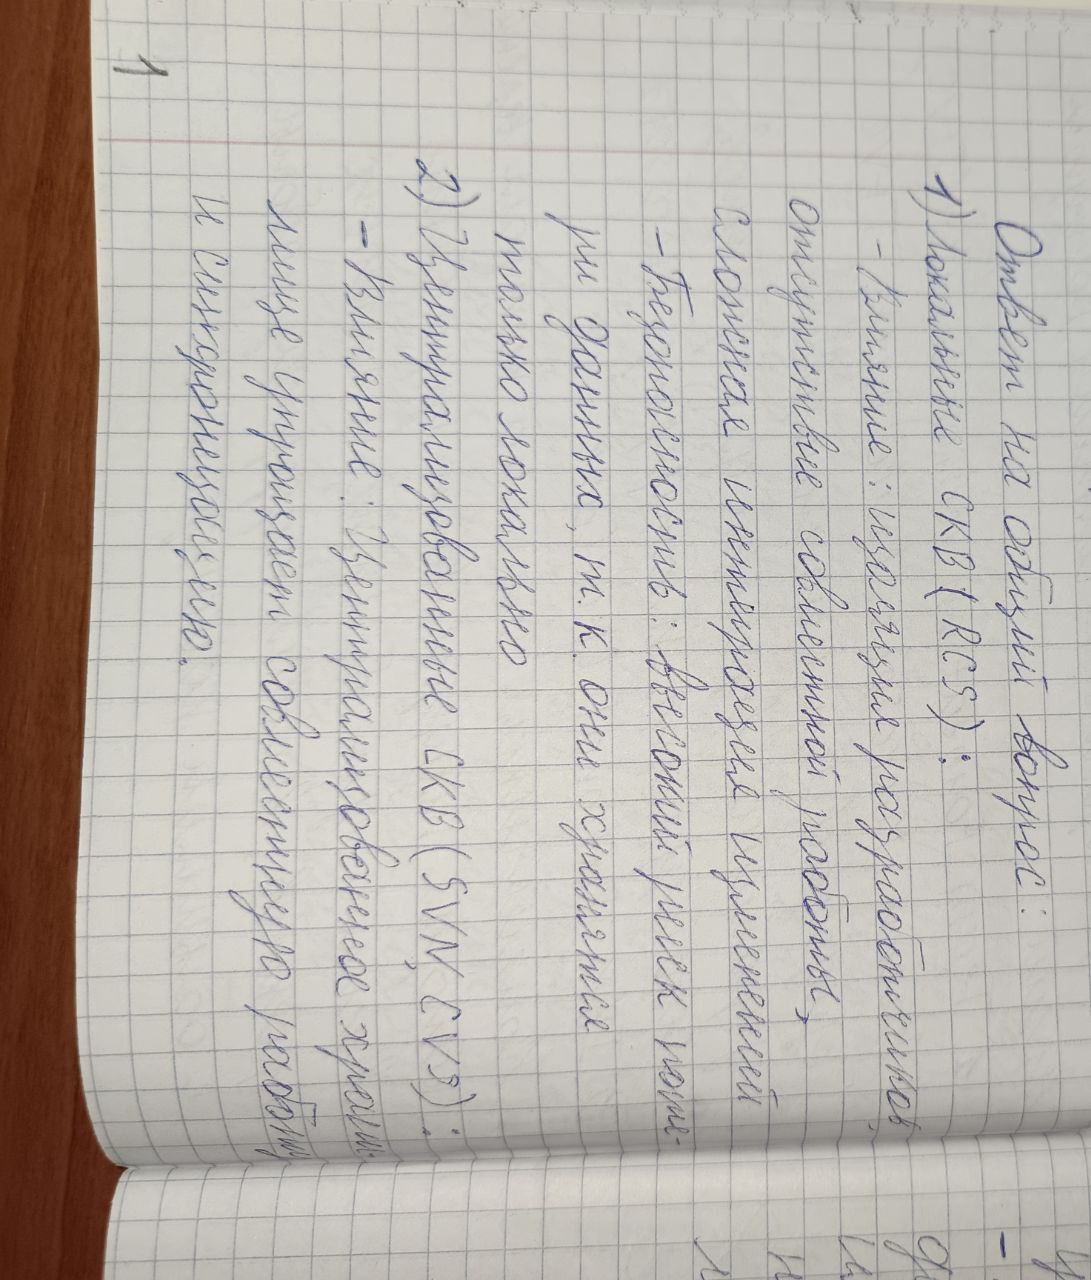 Ответ на общий вопрос:
1) Локальные СКВ (RCS):
- Влияние: изоляция разработчиков,
отсутствие совместной работы,
сложная интеграция изменений
- Безопасность: высокий риск поте-
ри данных, т.к. они хранятся
только локально
2) Централизованные СКВ (SVN, CVS):
- Влияние: Централизованное храни-
лище упрощает совместную работу
и синхронизацию.
1